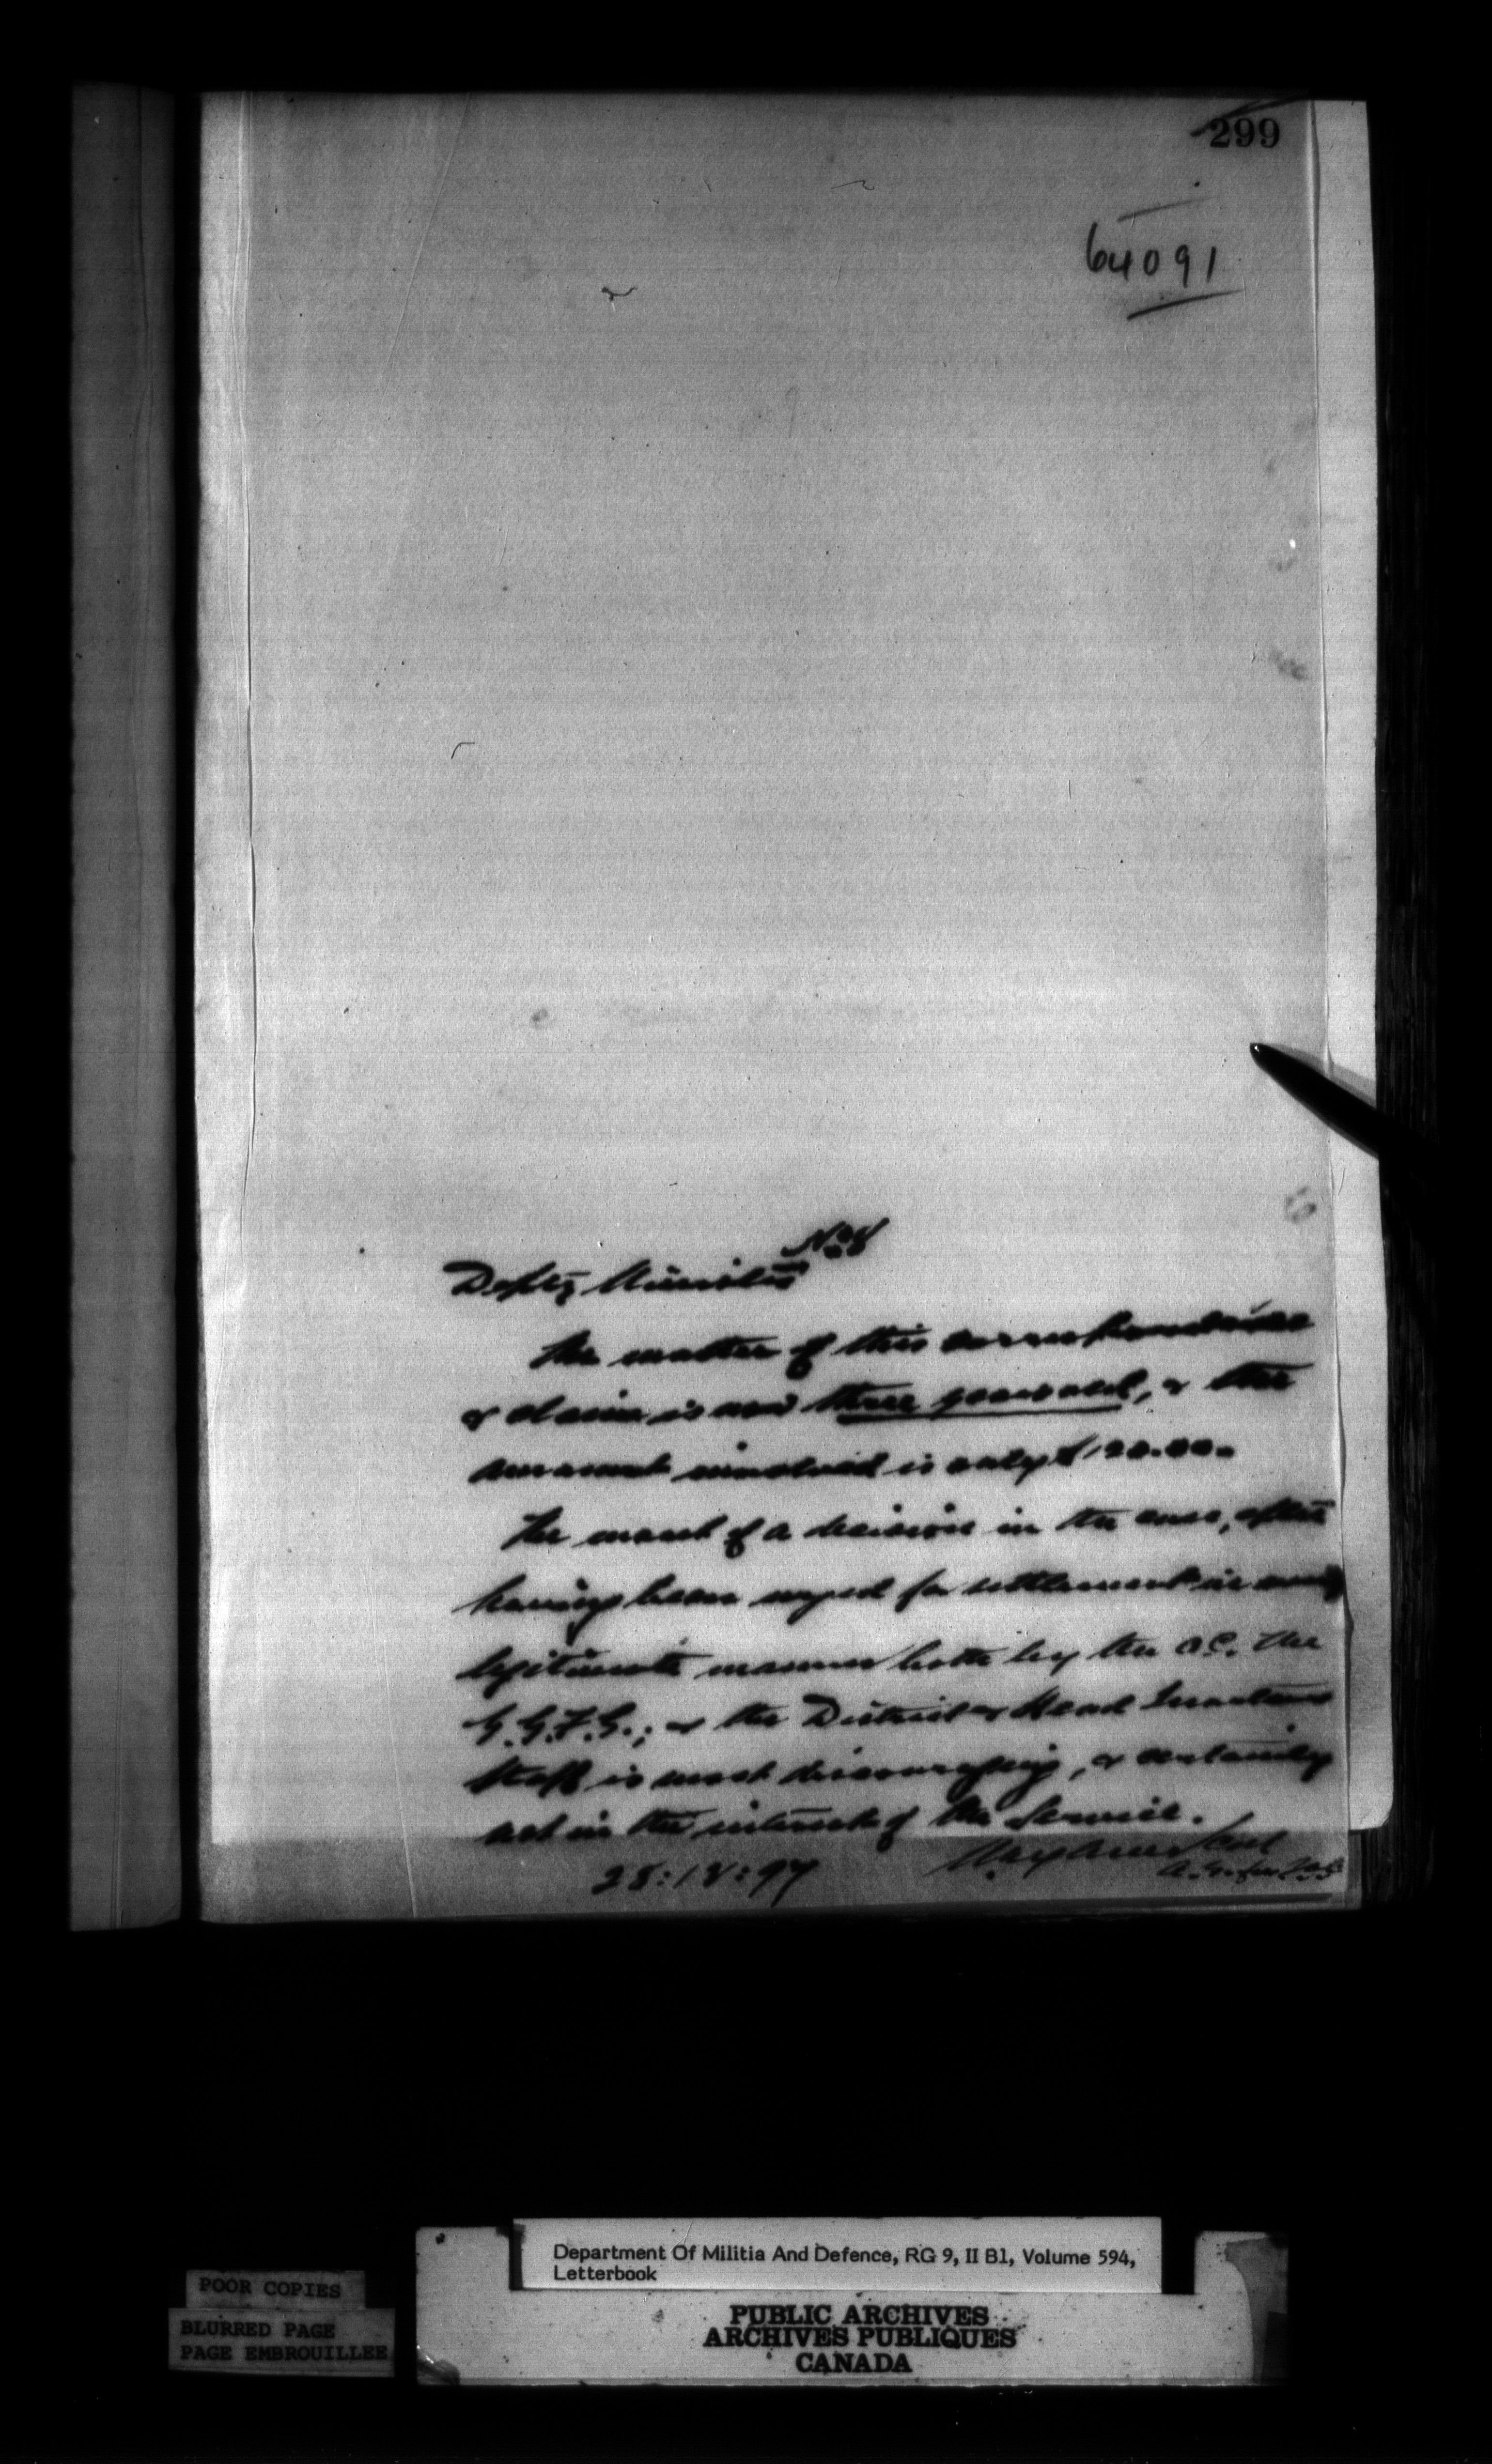 299
64091
No 8
Depty Minister
The matter of this correspondence
& claim is now three years old, & the
amount involved is only $120.00.
The want of a decision in the case, after
having been urged for settlement in every
legitimate manner both by the O.C. the
G.G.F.G.; & the District & Head Quarters
Staff is most discouraging, & certainly
not in the interest of the Service.
Col
28:12:97
POOR COPIES
BLURRED PAGE
PAGE EMBROUILLEE
Department Of Militia And Defence, RG 9, II B1, Volume 594,
Letterbook
PUBLIC ARCHIVES
ARCHIVES PUBLIQUES
CANADA